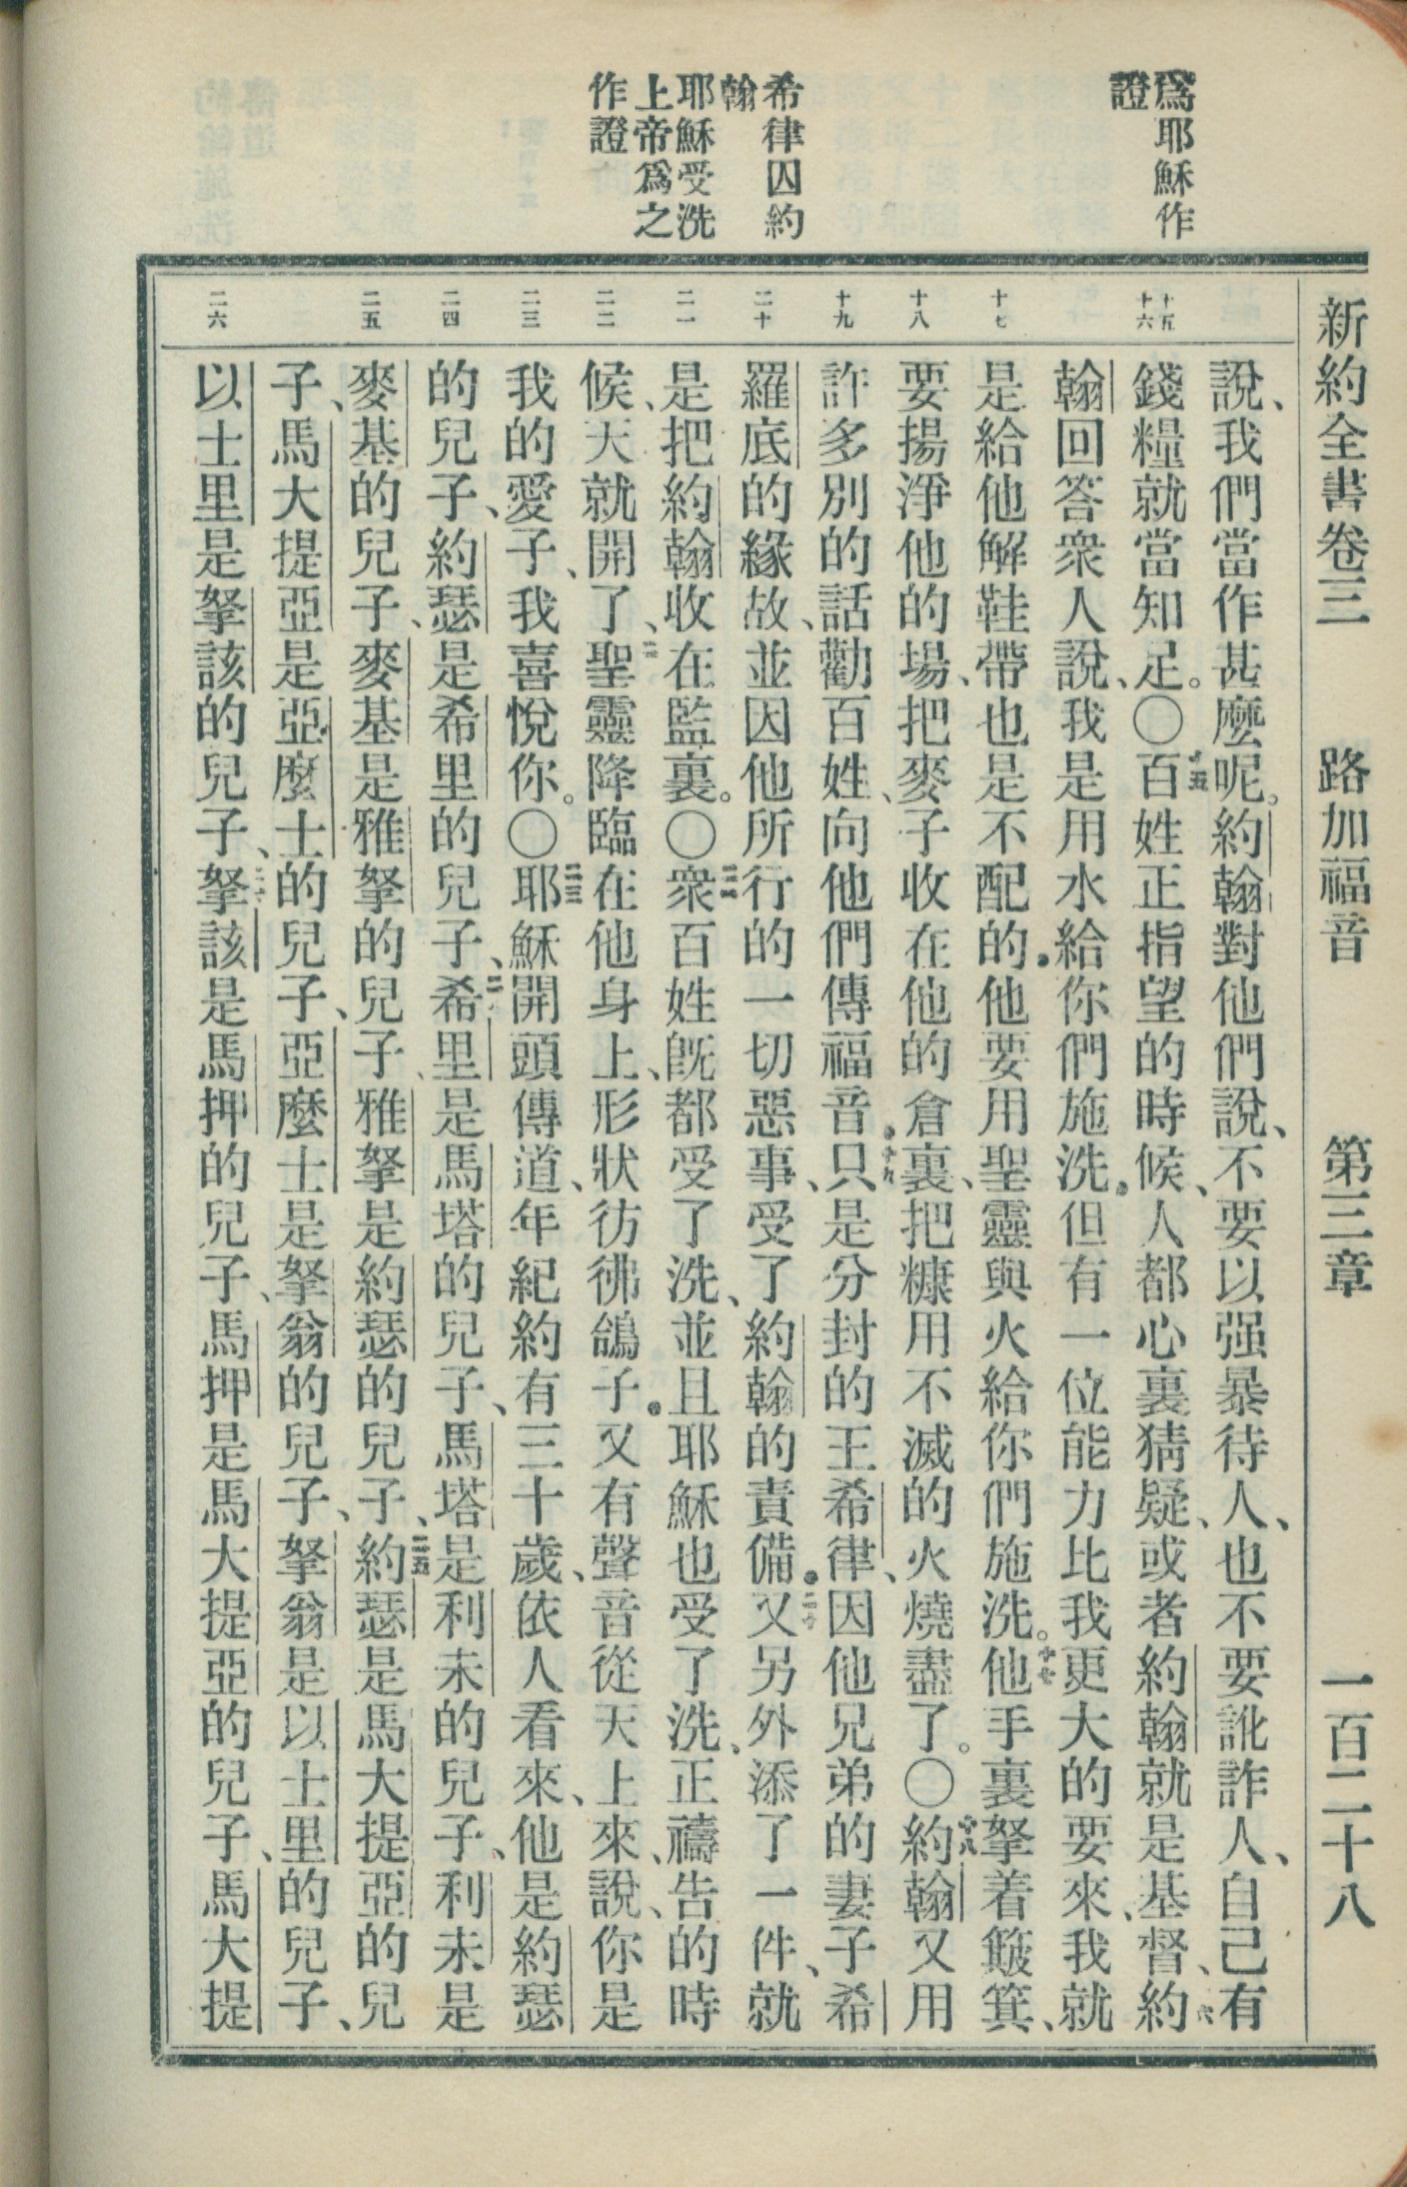 新約全書卷三　路加福音　第三章　一百二十八
爲耶穌作
證
希律囚約
翰
耶穌受洗
上帝爲之
作證
十五
十六
十七
十八
十九
二十
二一
二二
二三
二四
二五
二六
說、我們當作甚麼呢。約翰對他們說、不要以强暴待人、也不要訛詐人、自己有
錢糧就當知足。〇十五百姓正指望的時候、人都心裏猜疑、或者約翰就是基督、約
翰回答衆人說、我是用水給你們施洗．但有一位能力比我更大的要來、我就
是給他解鞋帶也是不配的．他要用聖靈與火給你們施洗。十七他手裏拏着簸箕、
要揚淨他的場、把麥子收在他的倉裏、把糠用不滅的火燒盡了。〇十八約翰又用
許多別的話勸百姓、向他們傳福音．十九只是分封的王希律、因他兄弟的妻子希
羅底的緣故、並因他所行的一切惡事、受了約翰的責備．二十又另外添了一件、就
是把約翰收在監裏。〇二一衆百姓旣都受了洗、並且耶穌也受了洗、正禱告的時
候、天就開了、二二聖靈降臨在他身上、形狀彷彿鴿子．又有聲音從天上來、說、你是
我的愛子、我喜悅你。〇二三耶穌開頭傳道、年紀約有三十歲、依人看來、他是約瑟
的兒子、約瑟是希里的兒子、二四希里是馬塔的兒子、馬塔是利未的兒子、利未是
麥基的兒子、麥基是雅拏的兒子、雅拏是約瑟的兒子、二五約瑟是馬大提亞的兒
子、馬大提亞是亞麼士的兒子、亞麼士是拏翁的兒子、拏翁是以士里的兒子、
以士里是拏該的兒子、二六拏該是馬押的兒子、馬押是馬大提亞的兒子、馬大提